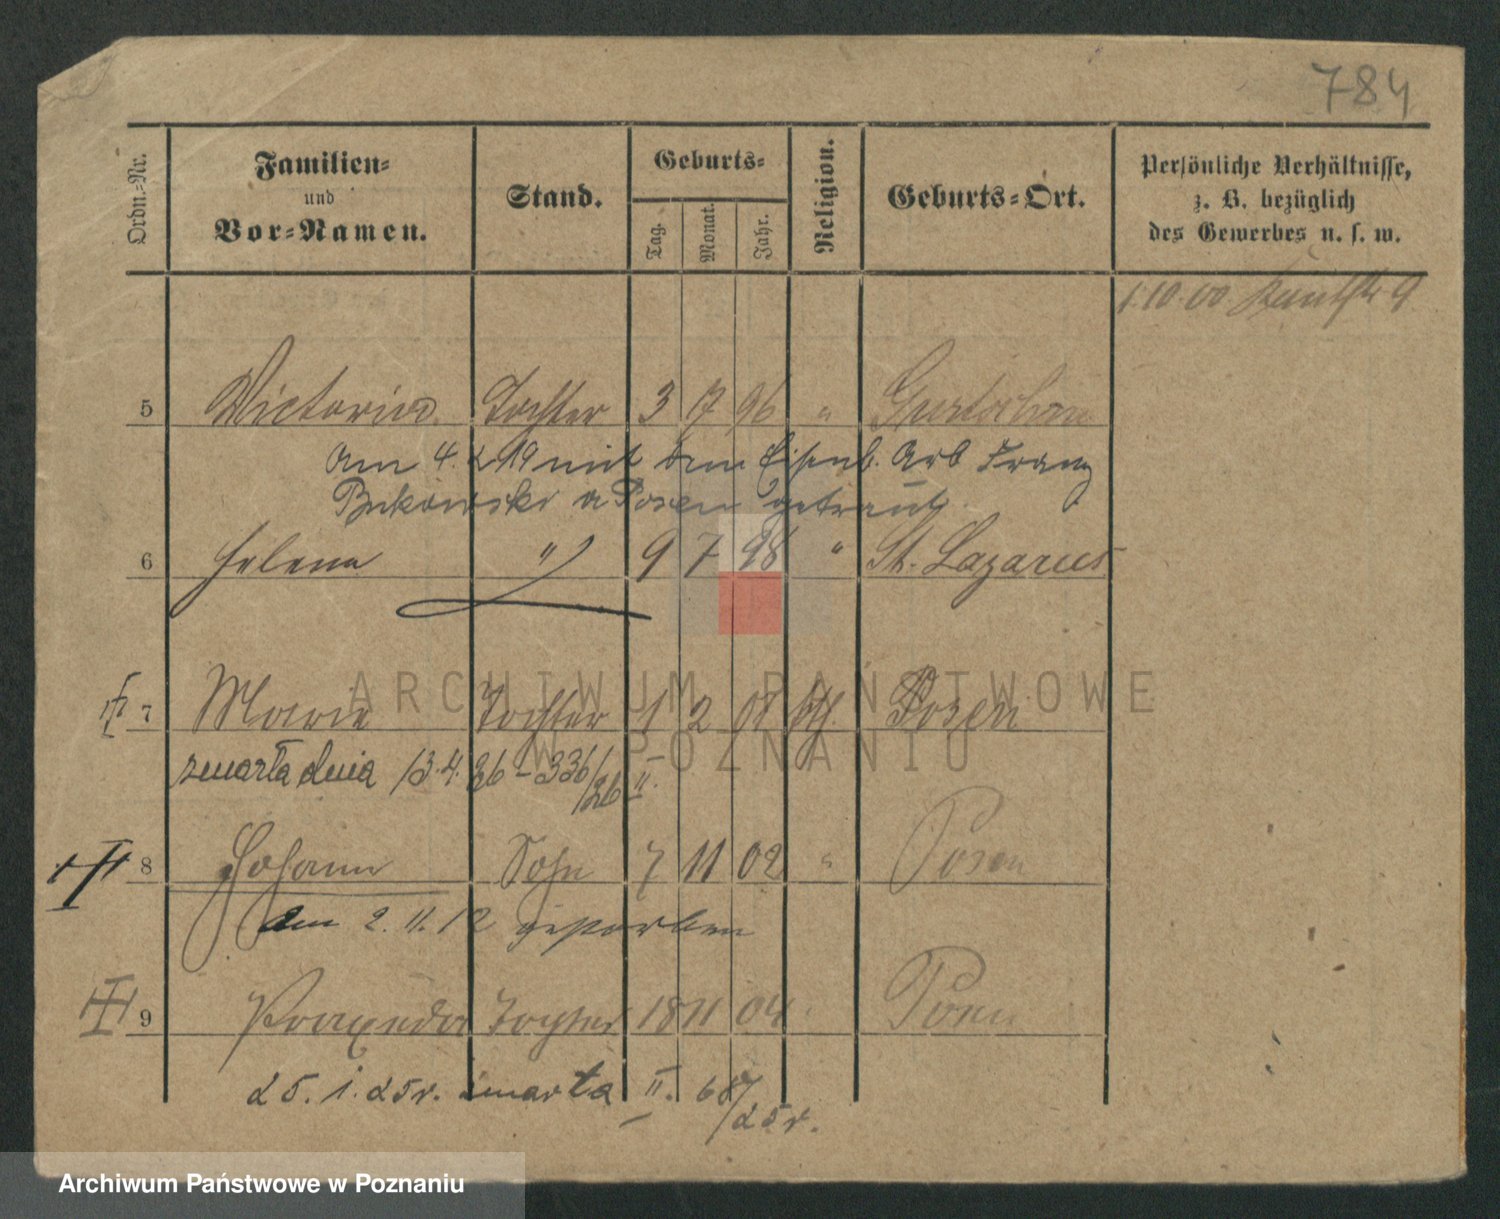 784
Ordn.-Nr. Familien- und Vor-Namen. Stand. Geburts- Tag. Monat. Jahr. Religion. Geburts-Ort. Persönliche Verhältnisse, z. B. bezüglich des Gewerbes u. s. w.
1.10.00 9
5 Victoria Tochter 3 7 96 "
Am 4. 2 19 mit dem Eisenb. Arb Franz
Bukowski a Posen getraut.
6 Helena " 9 7 98 " St. Lazarus
ARCHIWUM PAŃSTWOWE
W POZNANIU
7 Marie Tochter 1 2 01 kth. Posen
zmarła dnia 13.4.26 - 336/26 II.
8 Johann Sohn 7 11 02 " Posen
Am 2. 11. 12 gestorben
9 Praxeda Tochter 18 11 04 Posen
25. 1. 25 r. zmarła II. 687/25 r.
Archiwum Państwowe w Poznaniu